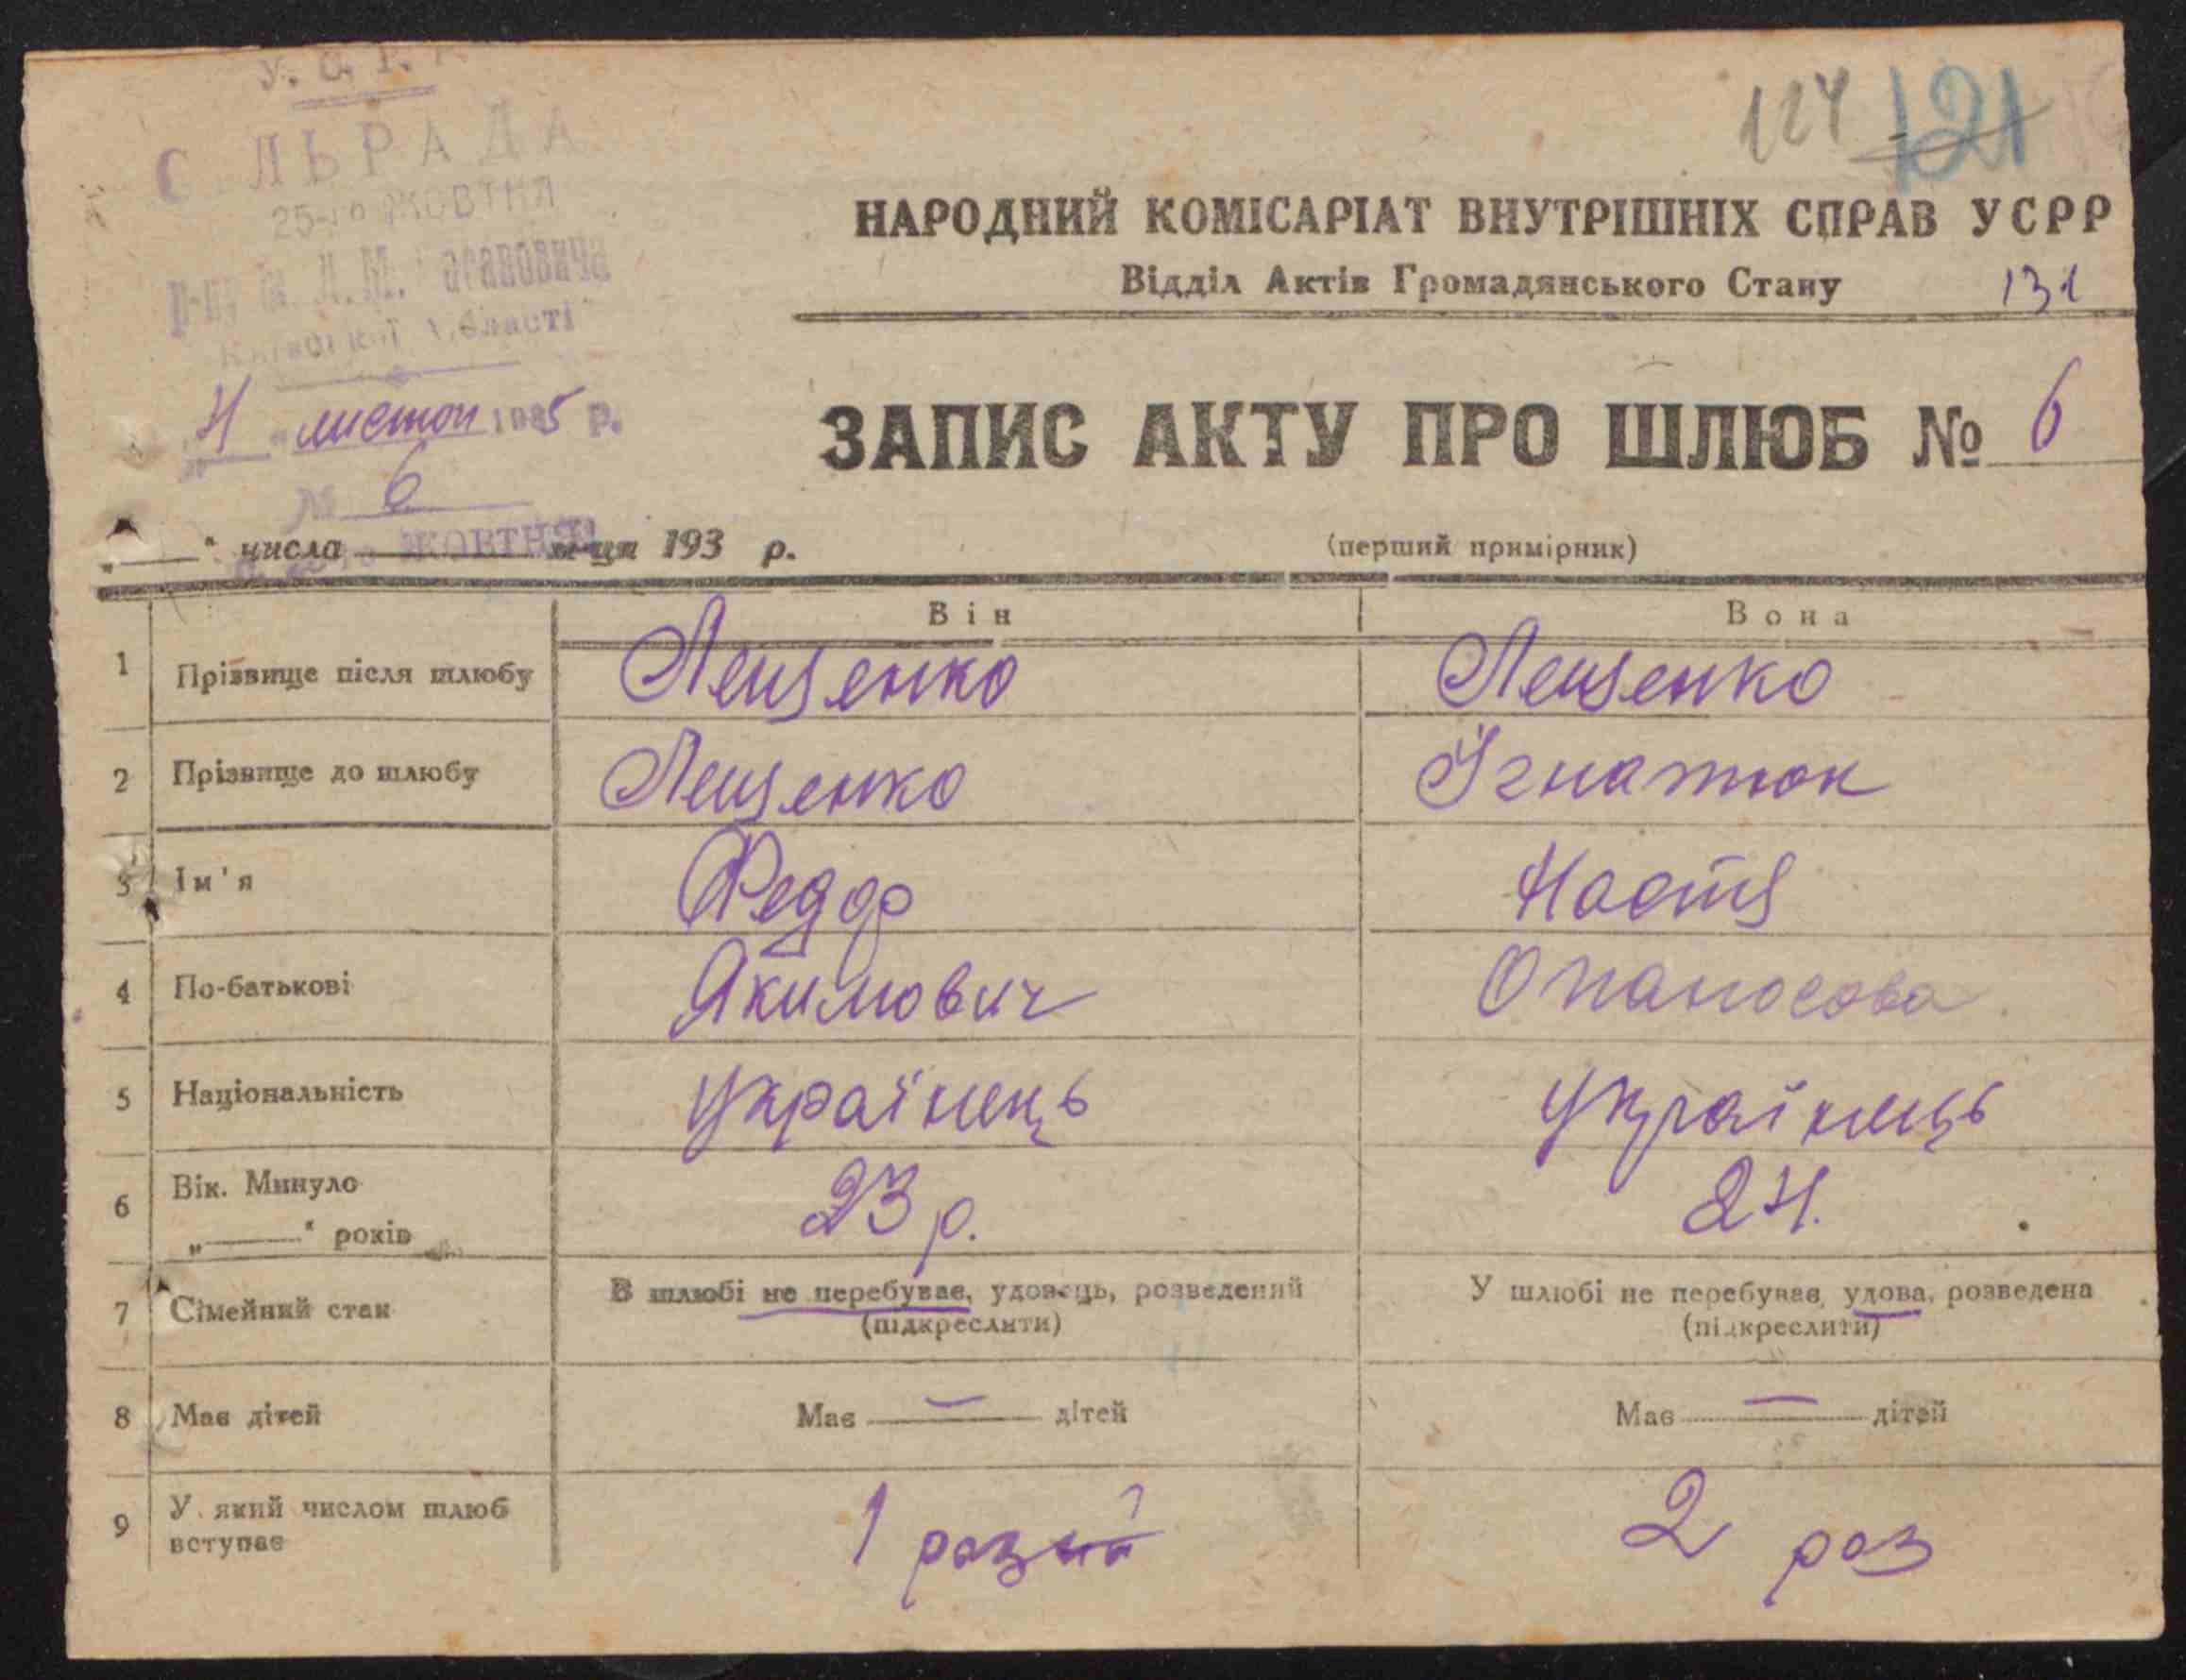 У. С. Р. Р.
С ЛЬРАДА
25-го ЖОВТНЯ
р-ну ім. Л. М. Кагановича
Київської області
"4" листоп 1935 р.
№ 6
124 121
НАРОДНИЙ КОМІСАРІАТ ВНУТРІШНІХ СПРАВ УСРР
Відділ Актів Громадянського Стану 131
ЗАПИС АКТУ ПРО ШЛЮБ № 6
"____" числа ____ м-ця 193 р. (перший примірник)
ЖОВТНЯ
Він Вона
1 Прізвище після шлюбу Лещенко Лещенко
2 Прізвище до шлюбу Лещенко Ігнатюк
3 Ім'я Федор Настя
4 По-батькові Якимович Опанасова
5 Національність Українець Українець
6 Вік. Минуло 23 р. 24.
"____" років
7 Сімейний стан В шлюбі не перебуває, удовець, розведений У шлюбі не перебуває, удова, розведена
(підкреслити) (підкреслити)
8 Має дітей Має — дітей Має — дітей
9 У який числом шлюб 1 раз 2 раз
вступає